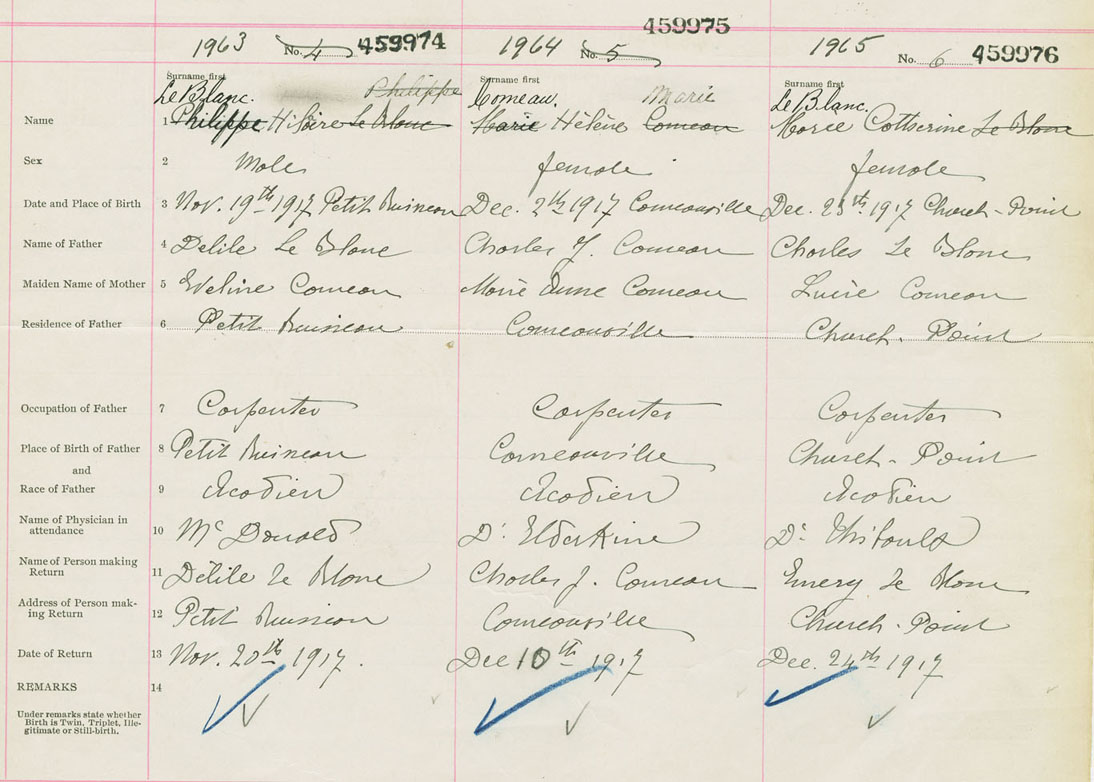 459975
1963 No. 4 459974 1964 No. 5 1965 No. 6 459976
Surname first Surname first Surname first
Le Blanc. Philippe Comeau. Marie Le Blanc.
Name 1 Philippe Hilaire Le Blanc Marie Hélène Comeau Marie Catherine Le Blanc
Sex 2 Male female female
Date and Place of Birth 3 Nov. 19th 1917 Petit Ruisseau Dec. 2th 1917 Comeauville Dec. 23th 1917 Church-Point
Name of Father 4 Delile Le Blanc Charles J. Comeau Charles Le Blanc
Maiden Name of Mother 5 Eveline Comeau Marie Anne Comeau Comeau
Residence of Father 6 Petit Ruisseau Comeauville Church-Point
Occupation of Father 7 Carpenter Carpenter Carpenter
Place of Birth of Father 8 Petit Ruisseau Comeauville Church-Point
and
Race of Father 9 Acadien Acadien Acadien
Name of Physician in
attendance 10 Mc Donald Dr Elderkine Dr Thibault
Name of Person making
Return 11 Delile Le Blanc Charles J. Comeau Emery Le Blanc
Address of Person mak-
ing Return 12 Petit Ruisseau Comeauville Church-Point
Date of Return 13 Nov. 20th 1917. Dec 10th 1917 Dec. 24th 1917
REMARKS 14
Under remarks state whether
Birth is Twin, Triplet, Ille-
gitimate or Still-birth.